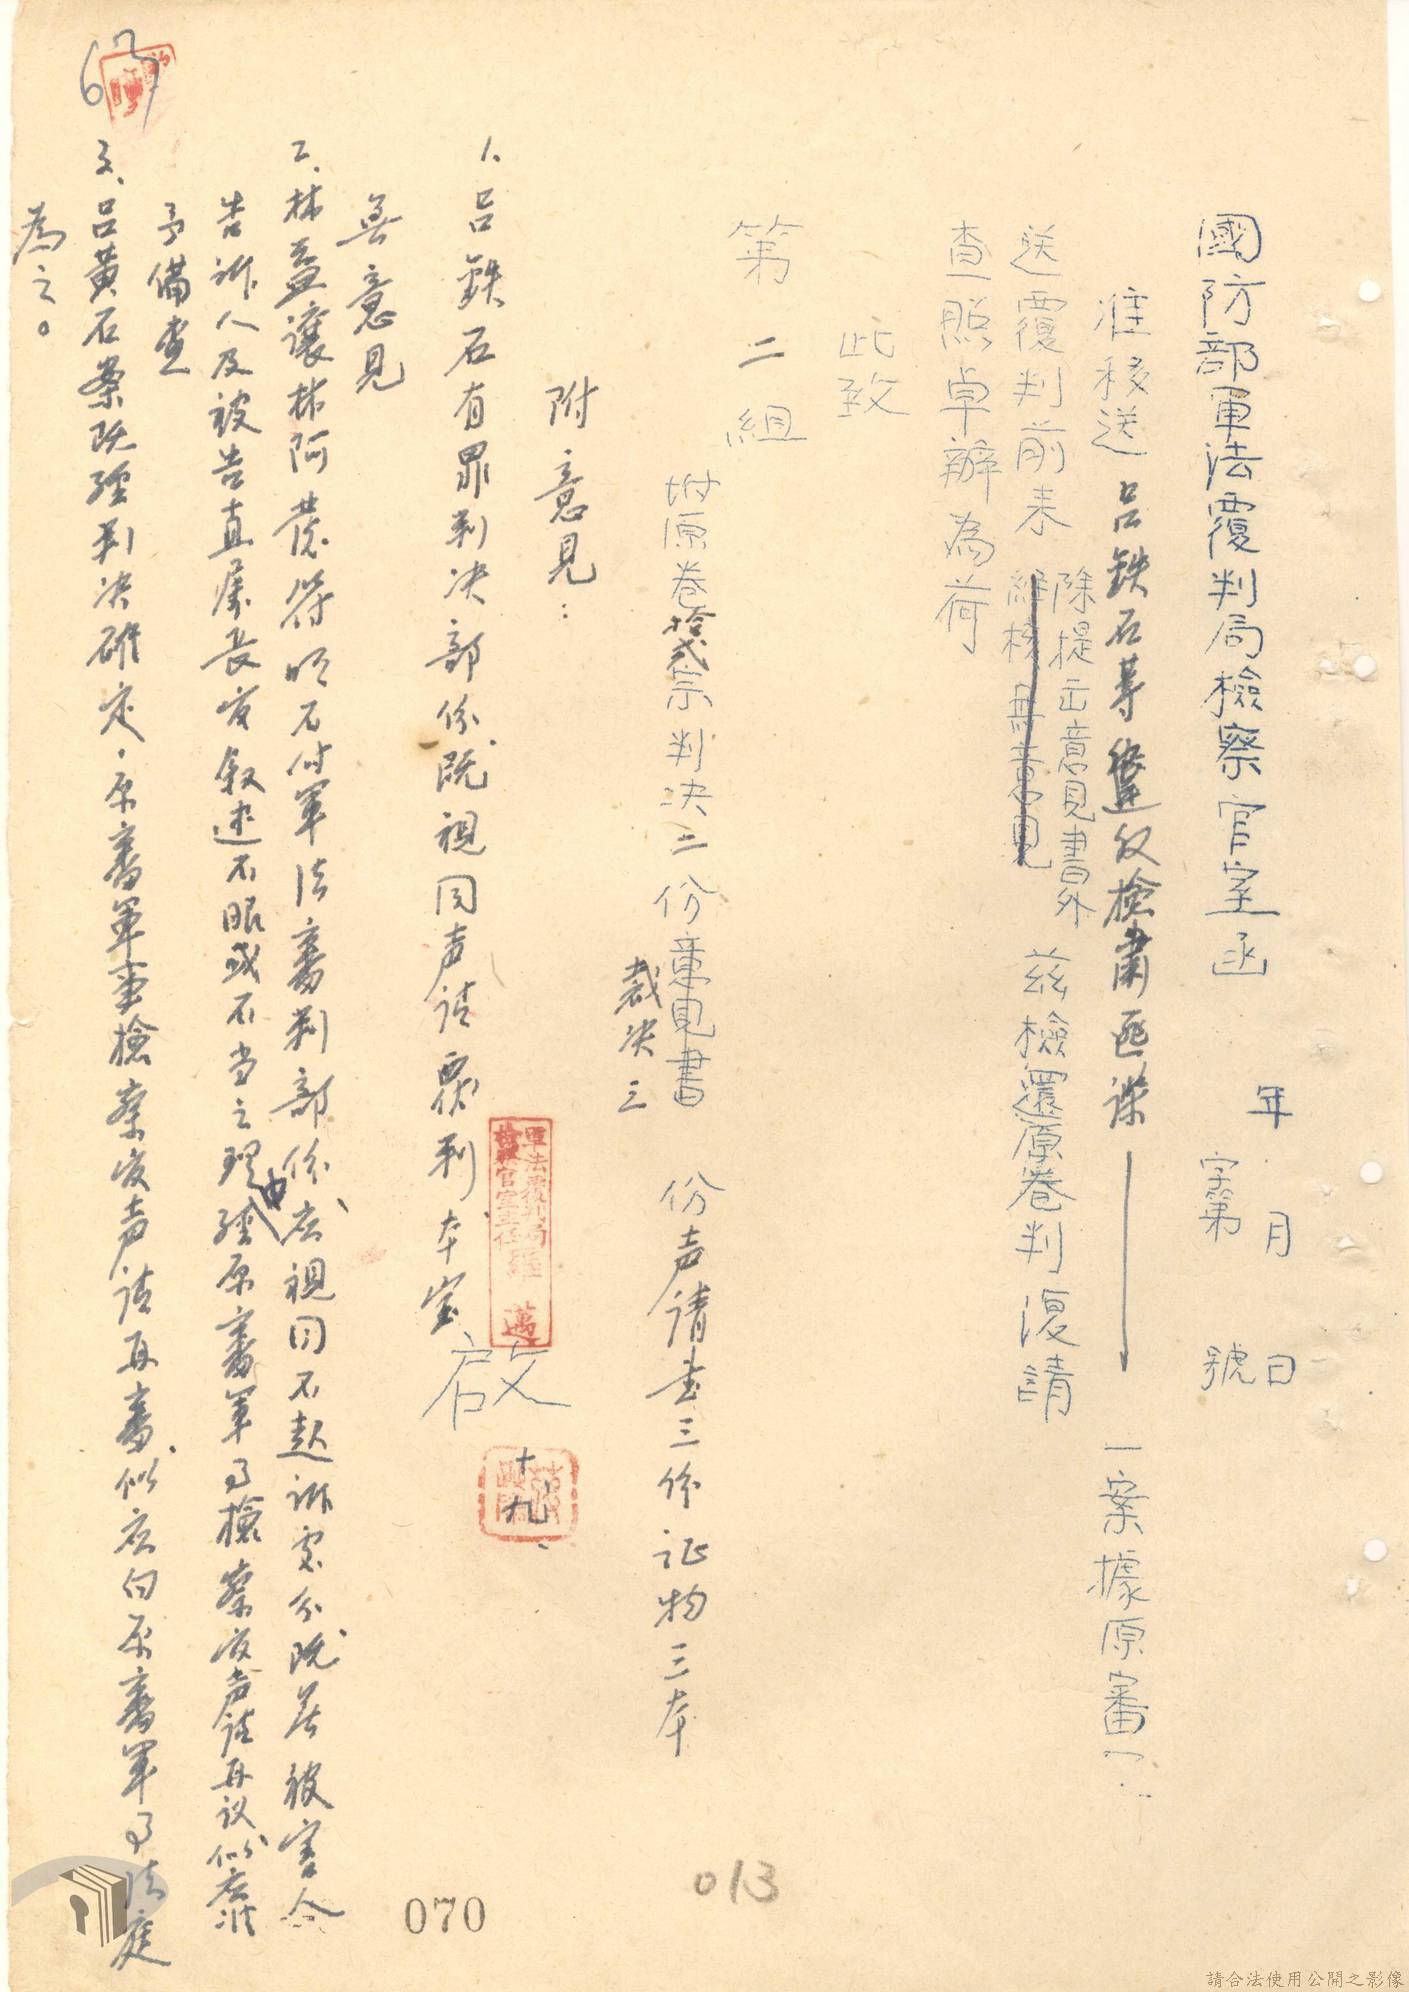 國防部軍法覆判局檢察官室函
年 月 日
字第 號
准移送呂鉄石等 檢肅匪諜 一案據原審
送覆判前来 除提出意見書外 茲檢還原卷判復請
經核無意見
查照卓辦為荷
此致
第二組
附原卷拾弍宗判決二份意見書 份声請書三份证物三本
裁决三
附意見：
1.呂鉄石有罪判决部份既視同声请覆判本室
無意見
2.林益讓林阿 不付軍法審判部份应視同不起訴處分既 被害人
告訴人及被告直屬長官叙述不服或不当之理由 經原審軍事檢察官声请再议似应准
予備查
3.呂黃石案既經判决確定，原審軍事檢察官声请再審，似应由原審軍事法庭
為之。
軍法覆判局
檢察官室主任羅邁
啟
十、九、
67
070
013
請合法使用公開之影像